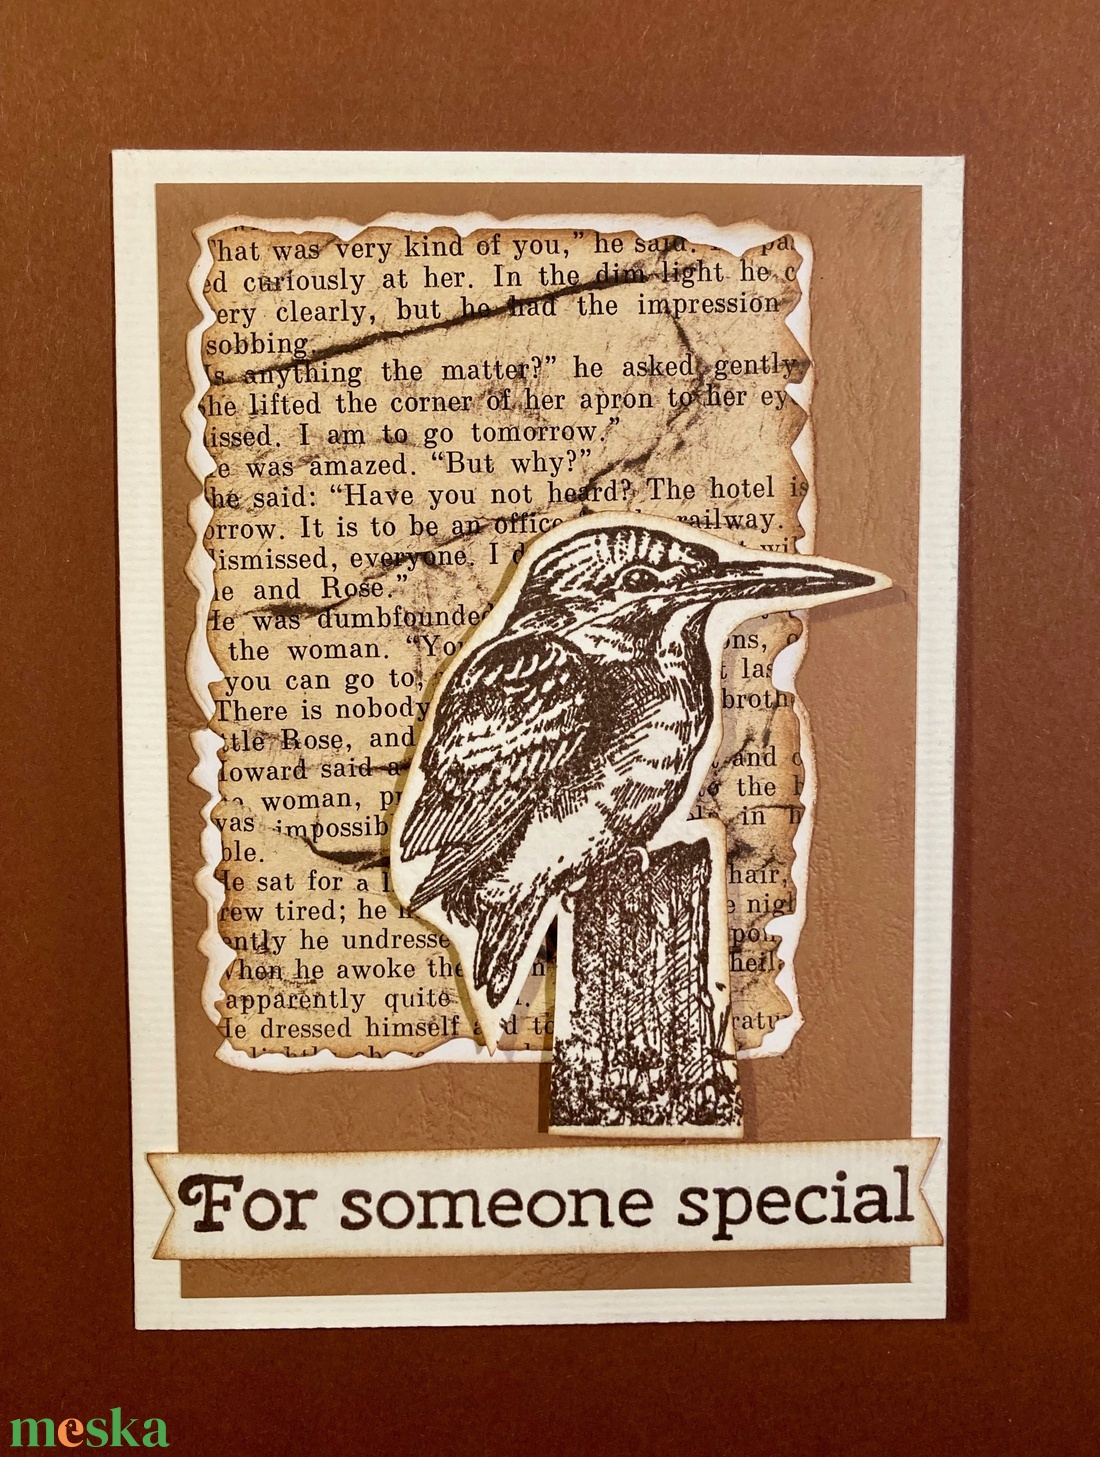 That was very kind of you,” he said.
ed curiously at her. In the dim light he
ery clearly, but he had the impression
sobbing.
Is anything the matter?” he asked gently.
he lifted the corner of her apron to her
issed. I am to go tomorrow.”
e was amazed. “But why?”
he said: “Have you not heard? The hotel is
orrow. It is to be an office railway.
dismissed, everyone. I
e and Rose.”
He was dumbfounded
the woman. “You ons,
you can go to, las
There is nobody broth
ttle Rose, and
Howard said and
woman, to the
was impossib in
ble.
He sat for a hair,
rew tired; he nig
ently he undresse
When he awoke the
apparently quite
He dressed himself and
For someone special
meska